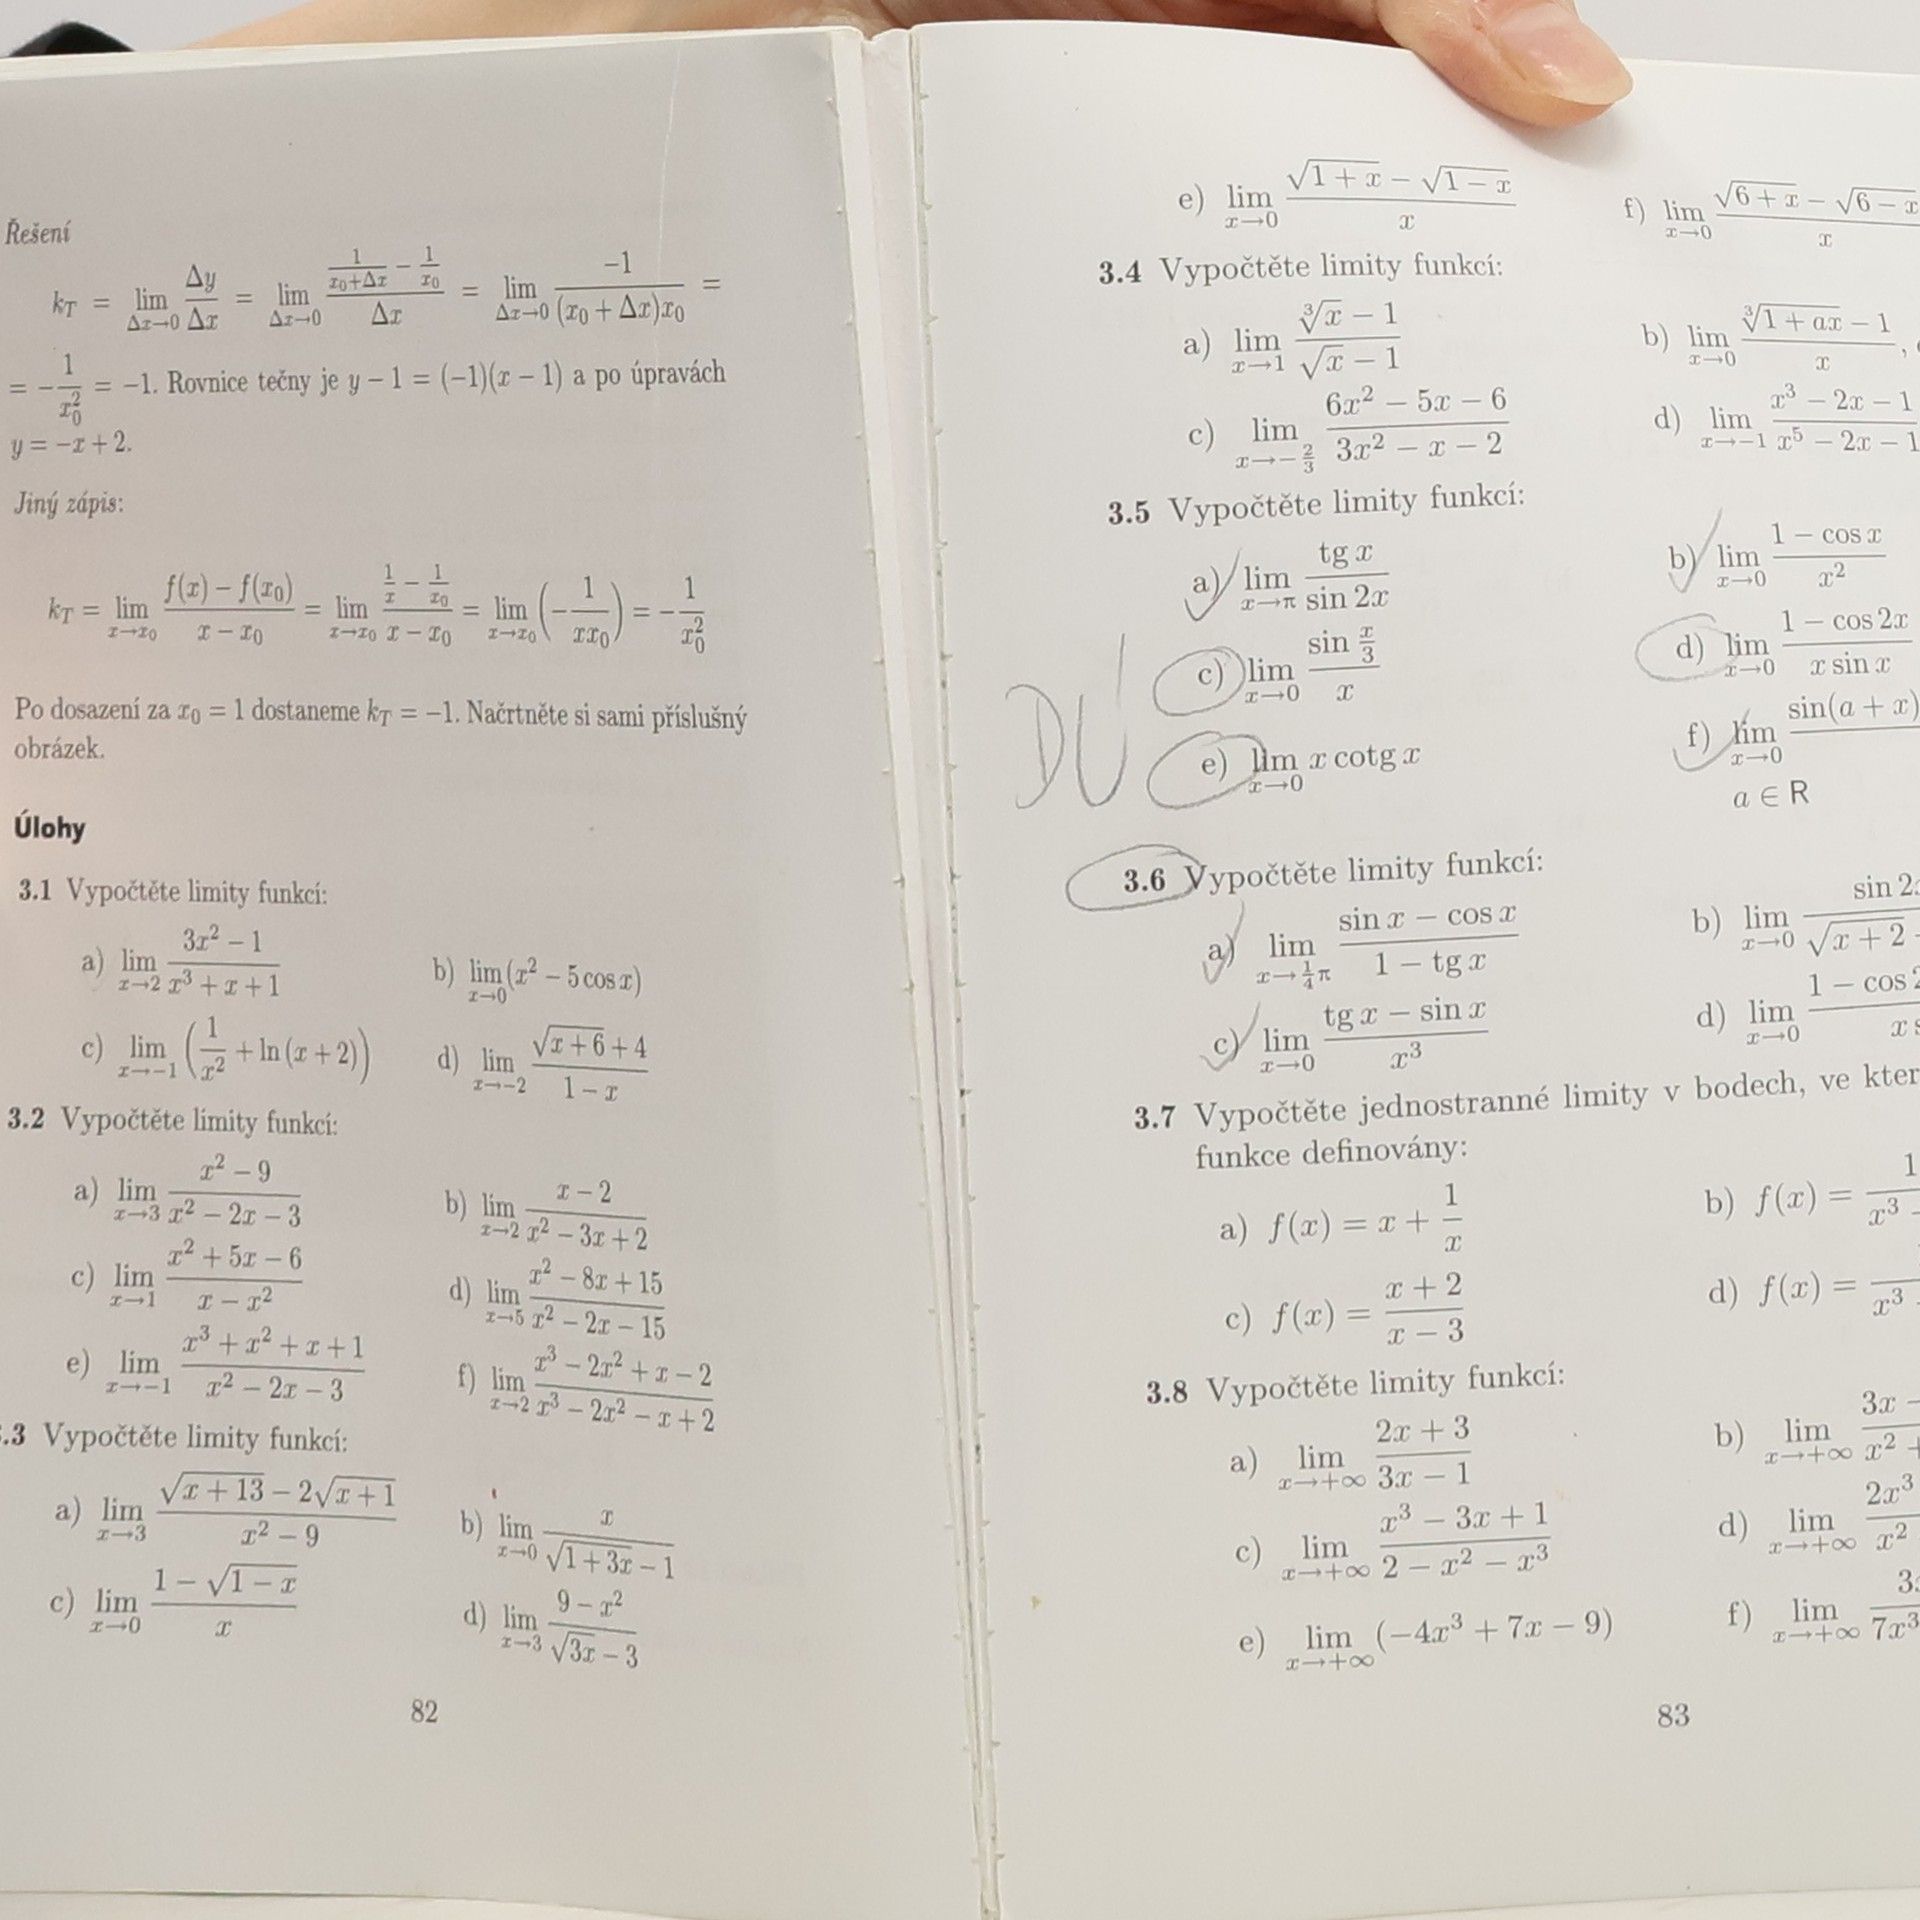 Řešení
k_T = lim_{Δx→0} Δy/Δx = lim_{Δx→0} (1/(x₀+Δx) − 1/x₀)/Δx = lim_{Δx→0} −1/((x₀ + Δx)x₀) =
= −1/x₀² = −1. Rovnice tečny je y − 1 = (−1)(x − 1) a po úpravách
y = −x + 2.
Jiný zápis:
k_T = lim_{x→x₀} (f(x) − f(x₀))/(x − x₀) = lim_{x→x₀} (1/x − 1/x₀)/(x − x₀) = lim_{x→x₀} (−1/(xx₀)) = −1/x₀²
Po dosazení za x₀ = 1 dostaneme k_T = −1. Načrtněte si sami příslušný
obrázek.
Úlohy
3.1 Vypočtěte limity funkcí:
a) lim_{x→2} (3x² − 1)/(x³ + x + 1) b) lim_{x→0} (x² − 5 cos x)
c) lim_{x→−1} (1/x² + ln (x + 2)) d) lim_{x→−2} (√(x + 6) + 4)/(1 − x)
3.2 Vypočtěte limity funkcí:
a) lim_{x→3} (x² − 9)/(x² − 2x − 3) b) lim_{x→2} (x − 2)/(x² − 3x + 2)
c) lim_{x→1} (x² + 5x − 6)/(x − x²) d) lim_{x→5} (x² − 8x + 15)/(x² − 2x − 15)
e) lim_{x→−1} (x³ + x² + x + 1)/(x² − 2x − 3) f) lim_{x→2} (x³ − 2x² + x − 2)/(x³ − 2x² − x + 2)
.3 Vypočtěte limity funkcí:
a) lim_{x→3} (√(x + 13) − 2√(x + 1))/(x² − 9) b) lim_{x→0} x/(√(1 + 3x) − 1)
c) lim_{x→0} (1 − √(1 − x))/x d) lim_{x→3} (9 − x²)/(√(3x) − 3)
82
e) lim_{x→0} (√(1 + x) − √(1 − x))/x f) lim_{x→0} (√(6 + x) − √(6 − x))/x
3.4 Vypočtěte limity funkcí:
a) lim_{x→1} (∛x − 1)/(√x − 1) b) lim_{x→0} (∛(1 + ax) − 1)/x,
c) lim_{x→−2/3} (6x² − 5x − 6)/(3x² − x − 2) d) lim_{x→−1} (x³ − 2x − 1)/(x⁵ − 2x − 1)
3.5 Vypočtěte limity funkcí:
a) lim_{x→π} tg x/sin 2x b) lim_{x→0} (1 − cos x)/x²
c) lim_{x→0} (sin x/3)/x d) lim_{x→0} (1 − cos 2x)/(x sin x)
DÚ
e) lim_{x→0} x cotg x f) lim_{x→0} sin(a + x)
a ∈ R
3.6 Vypočtěte limity funkcí:
a) lim_{x→¼π} (sin x − cos x)/(1 − tg x) b) lim_{x→0} sin 2 /√(x + 2)
c) lim_{x→0} (tg x − sin x)/x³ d) lim_{x→0} 1 − cos /x
3.7 Vypočtěte jednostranné limity v bodech, ve
funkce definovány:
a) f(x) = x + 1/x b) f(x) = 1/x³ −
c) f(x) = (x + 2)/(x − 3) d) f(x) = /x³
3.8 Vypočtěte limity funkcí:
a) lim_{x→+∞} (2x + 3)/(3x − 1) b) lim_{x→+∞} 3x − /x² +
c) lim_{x→+∞} (x³ − 3x + 1)/(2 − x² − x³) d) lim_{x→+∞} 2x³/x²
e) lim_{x→+∞} (−4x³ + 7x − 9) f) lim_{x→+∞} 3 /7x³
83